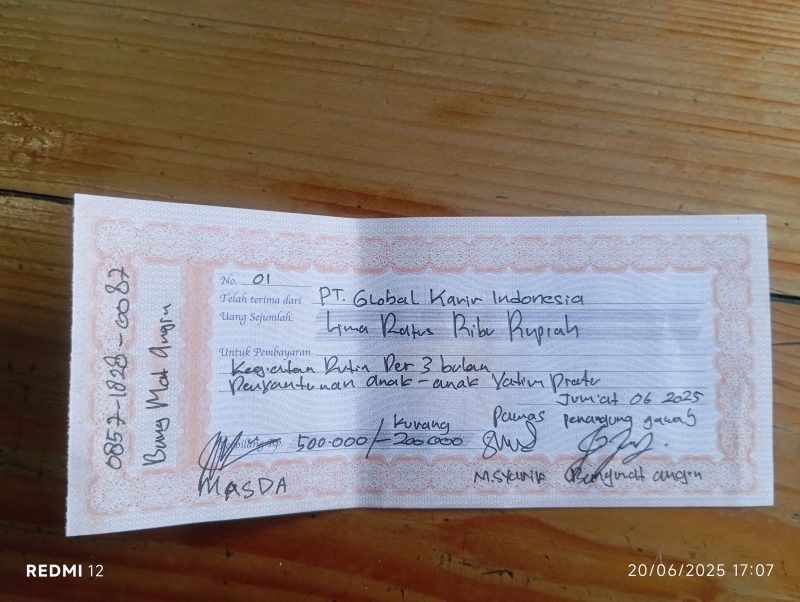 0857-1828-0087
Bung Mat Angin
No. 01
Telah terima dari PT. Global Karir Indonesia
Uang Sejumlah. Lima Ratus Ribu Rupiah
Untuk Pembayaran
Kegiatan Rutin Per 3 bulan
Penyantunan anak-anak Yatim Piatu
Jum'at 06 2025
Kurang Pamas Penanggung Jawab
500.000/-200.000
MASDA M.SYUNIA Bungmat angin
REDMI 12
20/06/2025 17:07